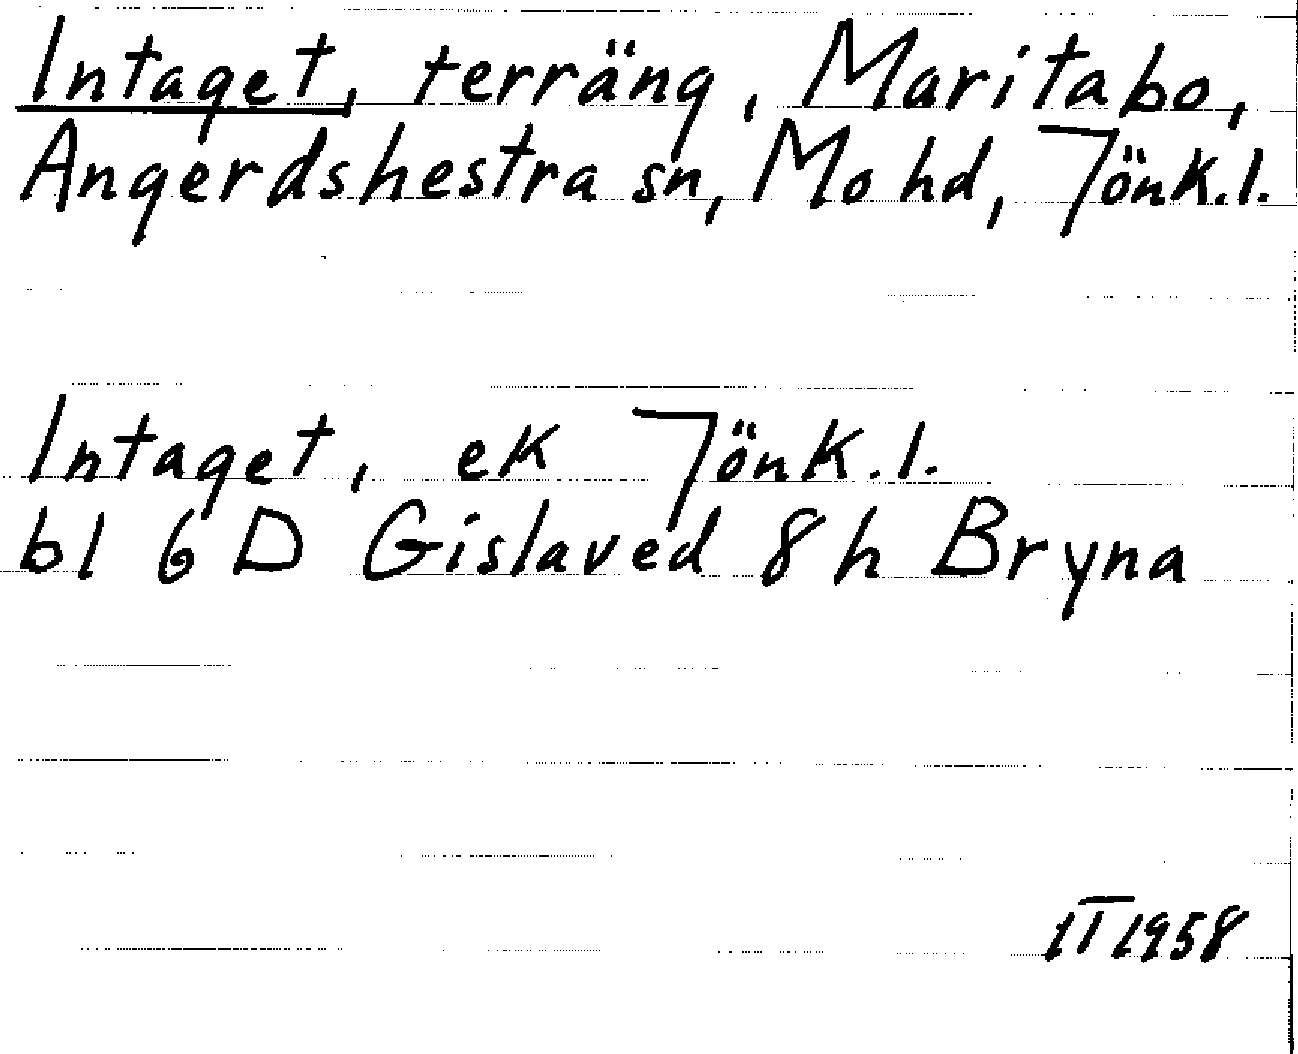 Intaget, terräng, Maritabo,
Angerdshestra sn, Mo hd, Jönk.l.
Intaget, ek Jönk.l.
bl 6D Gislaved 8h Bryna
1T1958